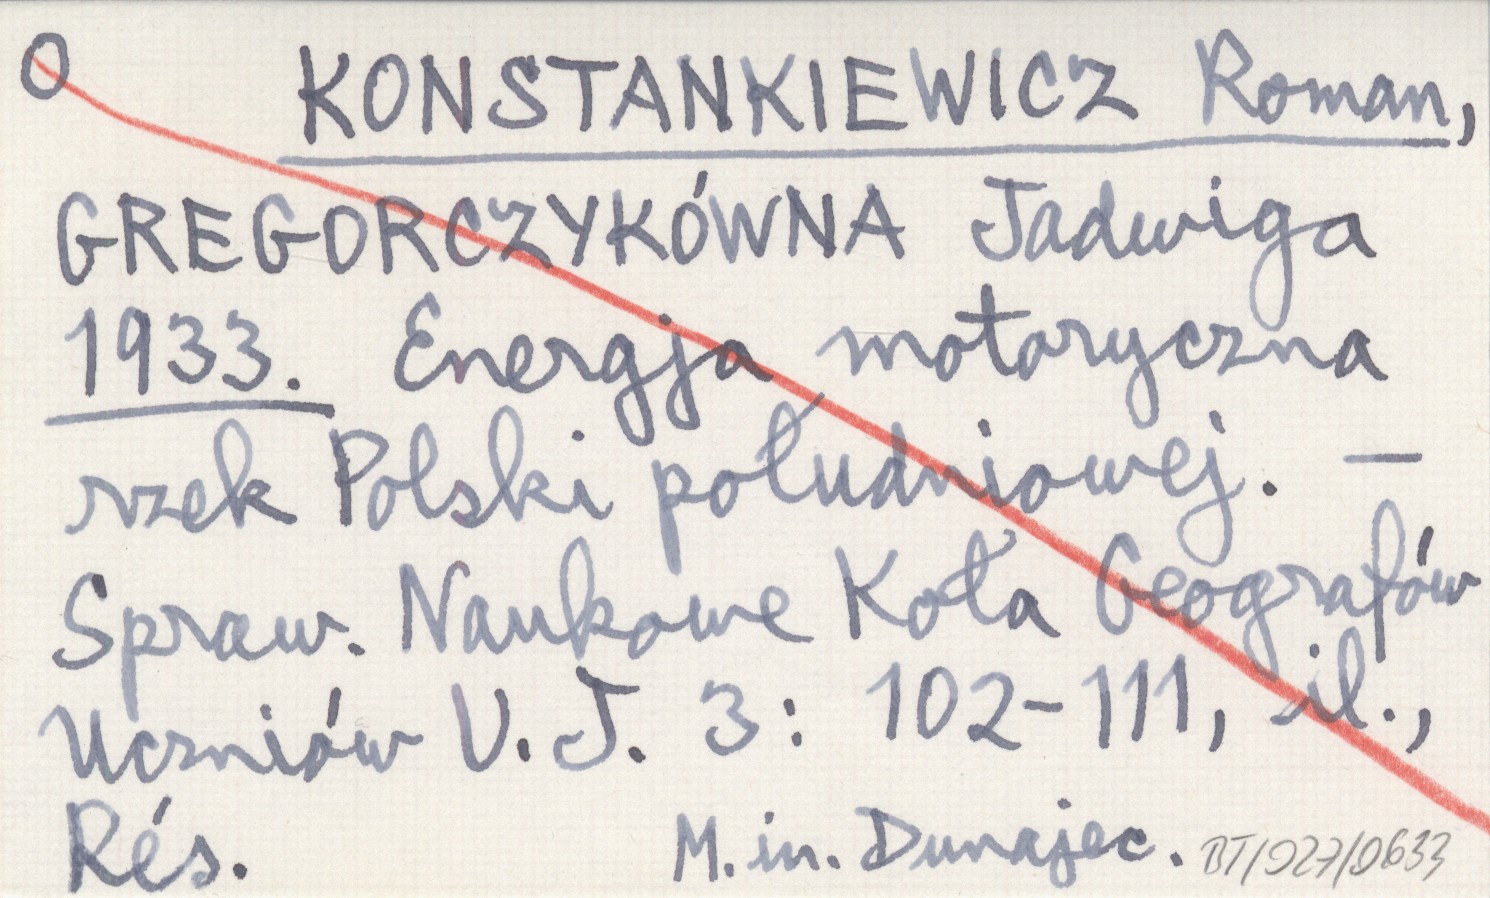 O KONSTANKIEWICZ Roman,
GREGORCZYKÓWNA Jadwiga
1933. Energja motoryczna
rzek Polski południowej. —
Spraw. Naukowe Koła Geografów
Uczniów U. J. 3: 102-111, il.,
Rés. M. in. Dunajec. BT/027/0633